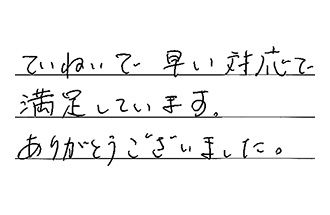 ていねいで早い対応で
満足しています。
ありがとうございました。